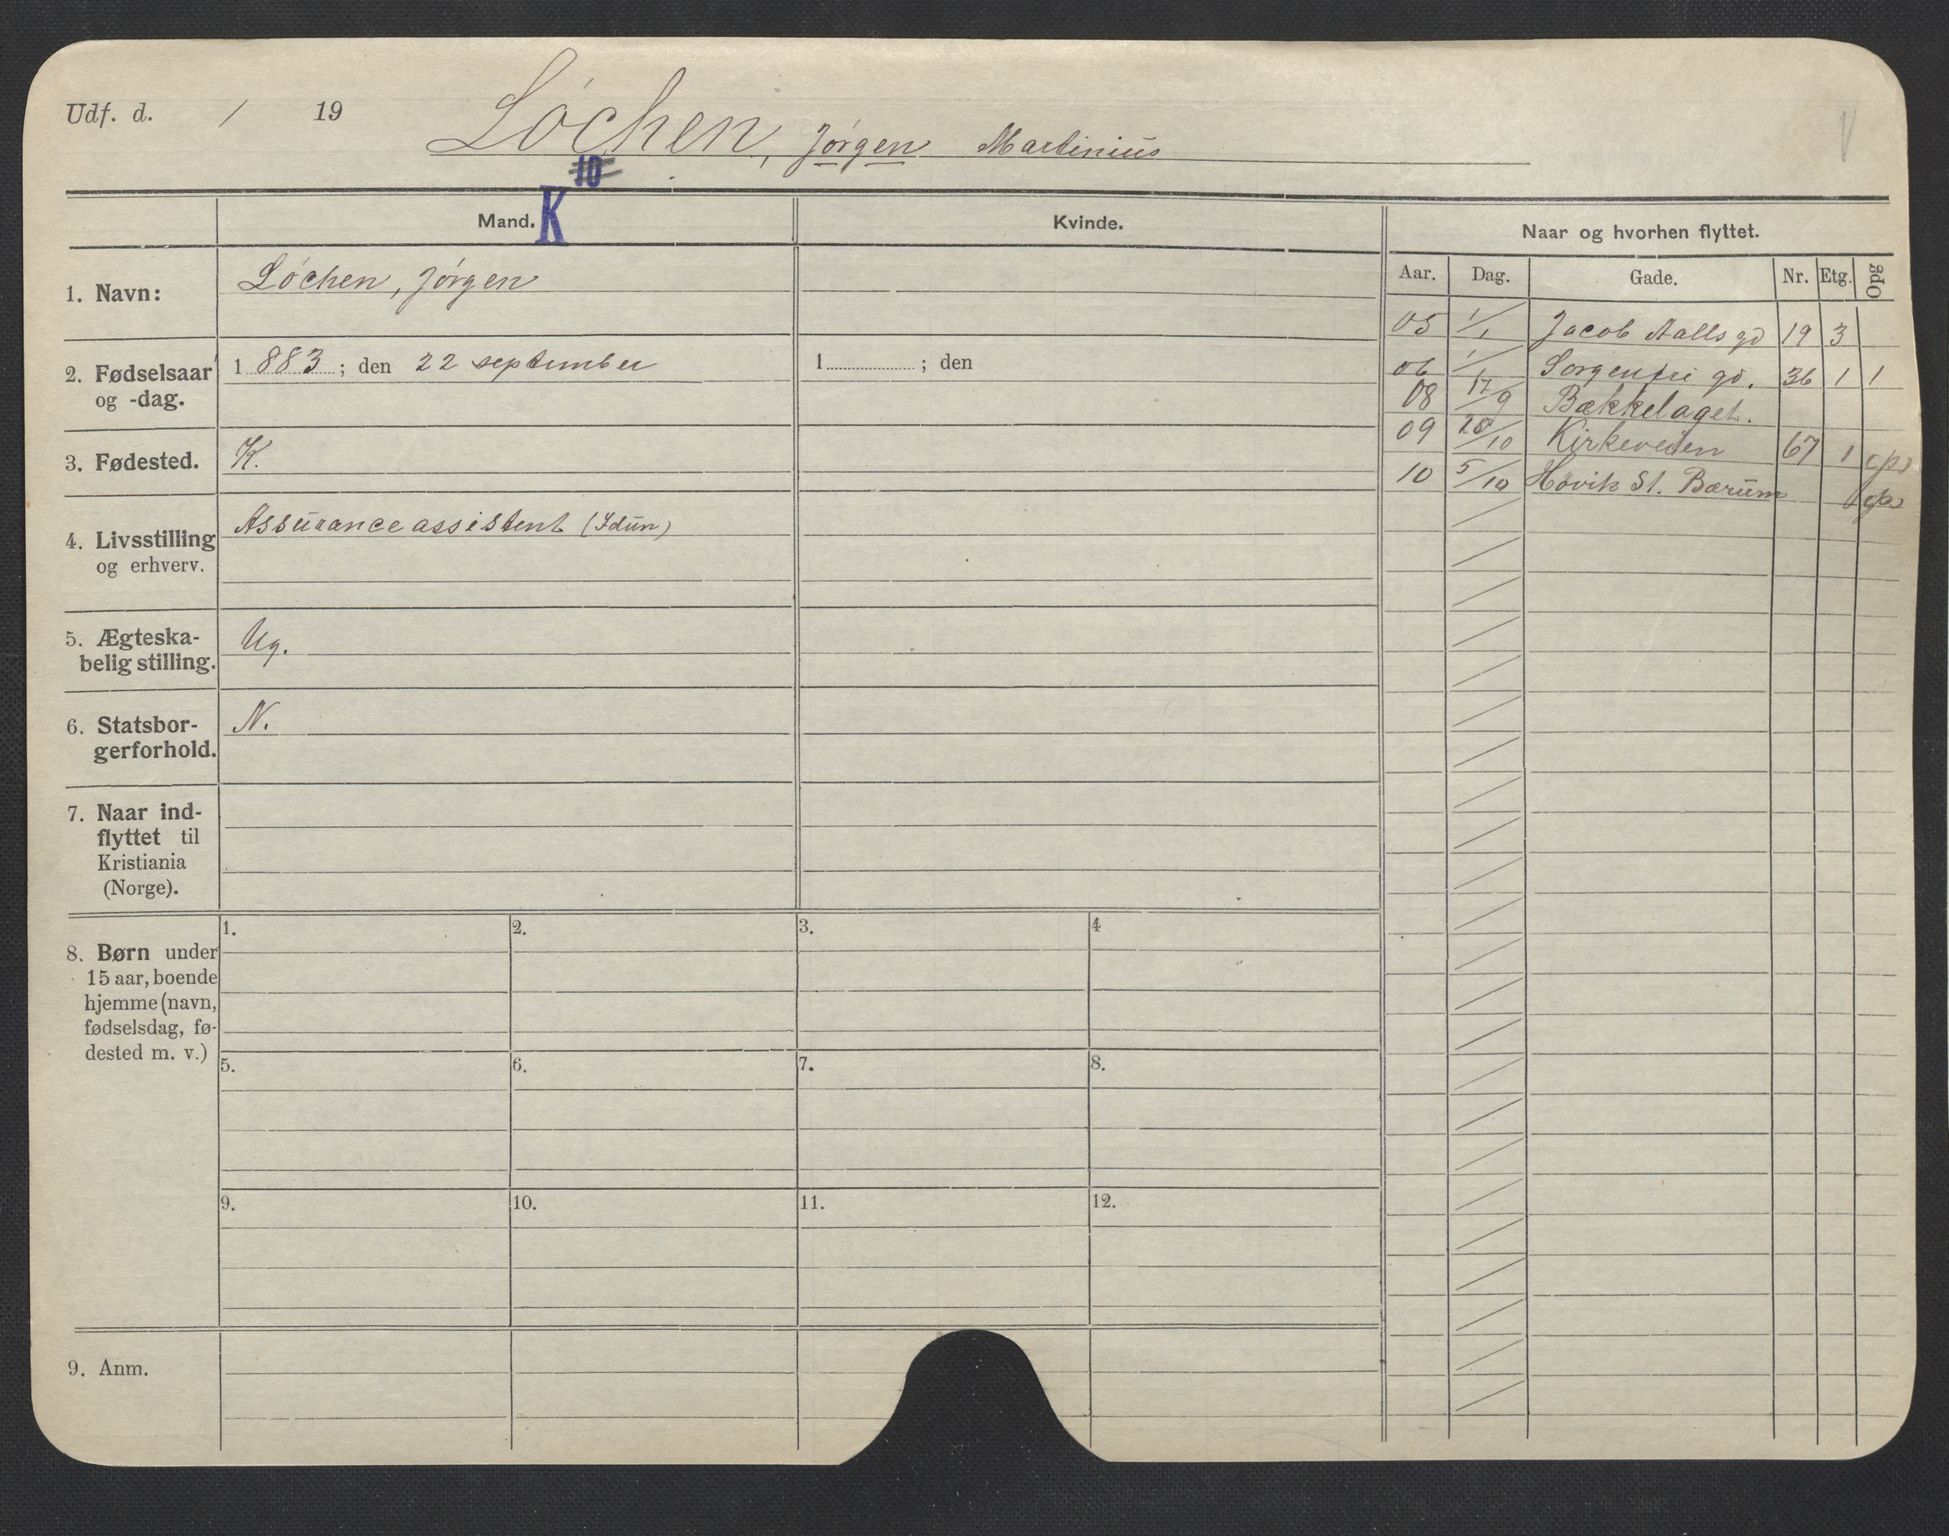 Udf. d. / 19
Løchen, Jørgen Martinius
10
K
Mand.
Kvinde.
Naar og hvorhen flyttet.
Aar. Dag. Gade. Nr. Etg. Opg
1. Navn: Løchen, Jørgen
2. Fødselsaar og -dag.
1 883 ; den 22 september
1 ; den
3. Fødested. K.
4. Livsstilling og erhverv.
Assuranceassistent (Idun)
5. Ægteska-
belig stilling.
Ug.
6. Statsbor-
gerforhold.
N.
7. Naar ind-
flyttet til
Kristiania
(Norge).
8. Børn under
15 aar, boende
hjemme (navn,
fødselsdag, fø-
dested m. v.)
1. 2. 3. 4
5. 6. 7. 8.
9. 10. 11. 12.
9. Anm.
05 1/1 Jacob Aalls gd 19 3
06 1/1 Sorgenfri gd. 36 1 1
08 17/9 Bækkelaget.
09 /10 Kirkeveien 67 1
10 5/10 Høvik St. Bærum